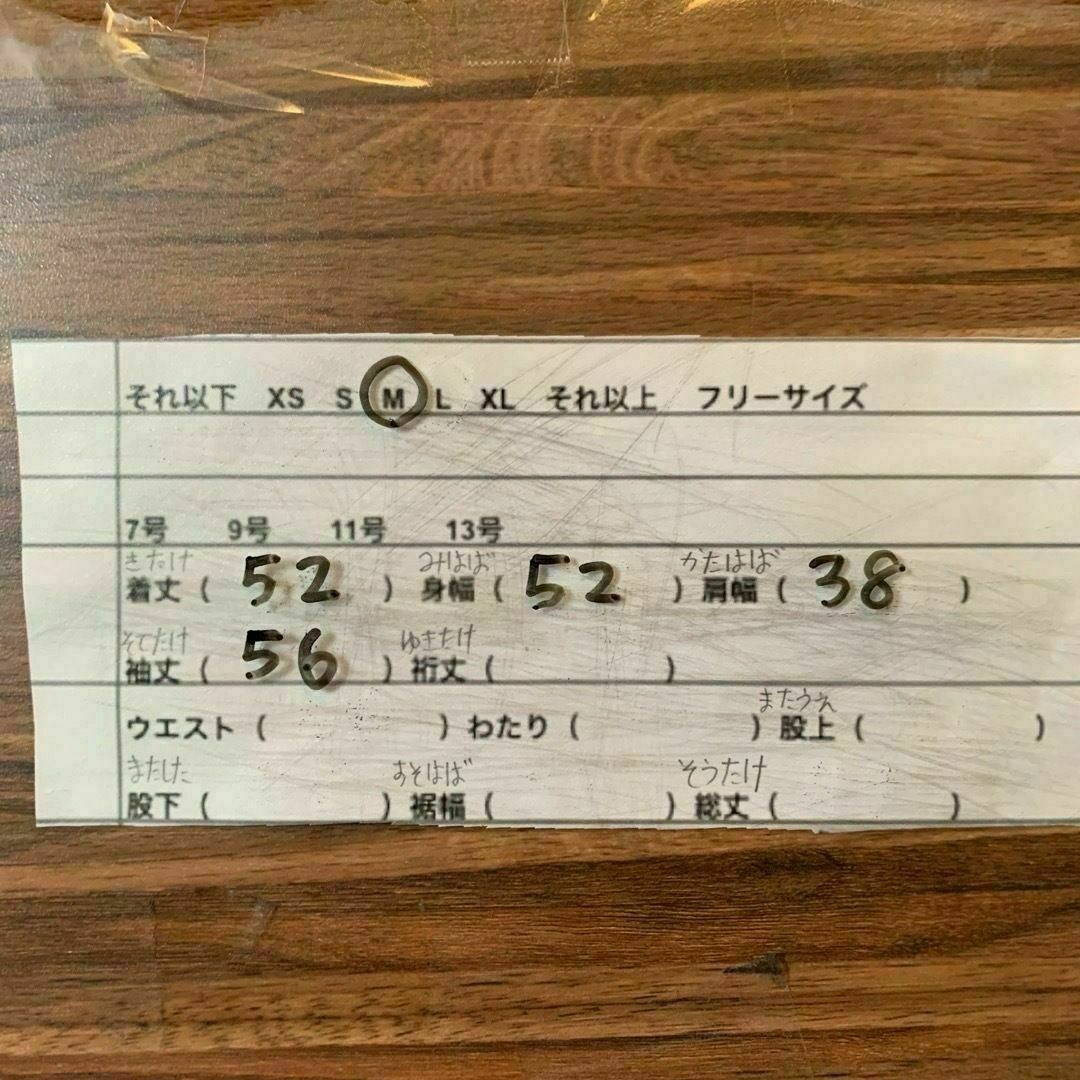 それ以下 XS S M L XL それ以上 フリーサイズ
7号 9号 11号 13号
きたけ みはば かたはば
着丈 ( 52 ) 身幅 ( 52 ) 肩幅 ( 38 )
そでたけ ゆきたけ
袖丈 ( 56 ) 裄丈 ( )
またうえ
ウエスト ( ) わたり ( ) 股上 ( )
またした すそはば そうたけ
股下 ( ) 裾幅 ( ) 総丈 ( )